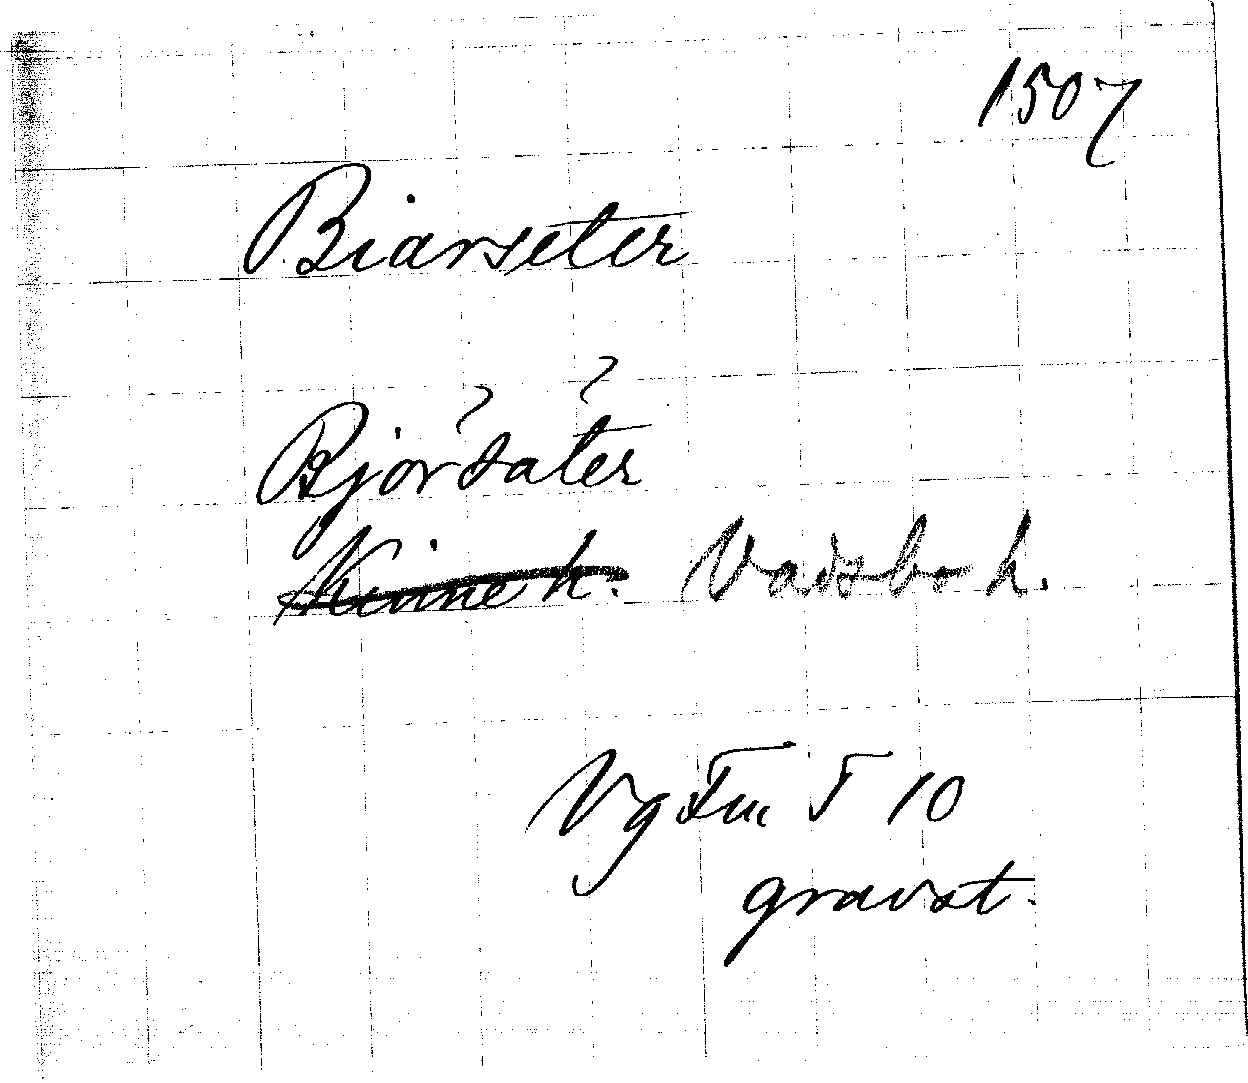 1507
Biarseter
Björsäter
Kinne h. Vadsbo h.
Vg Fm T 10
gravst.